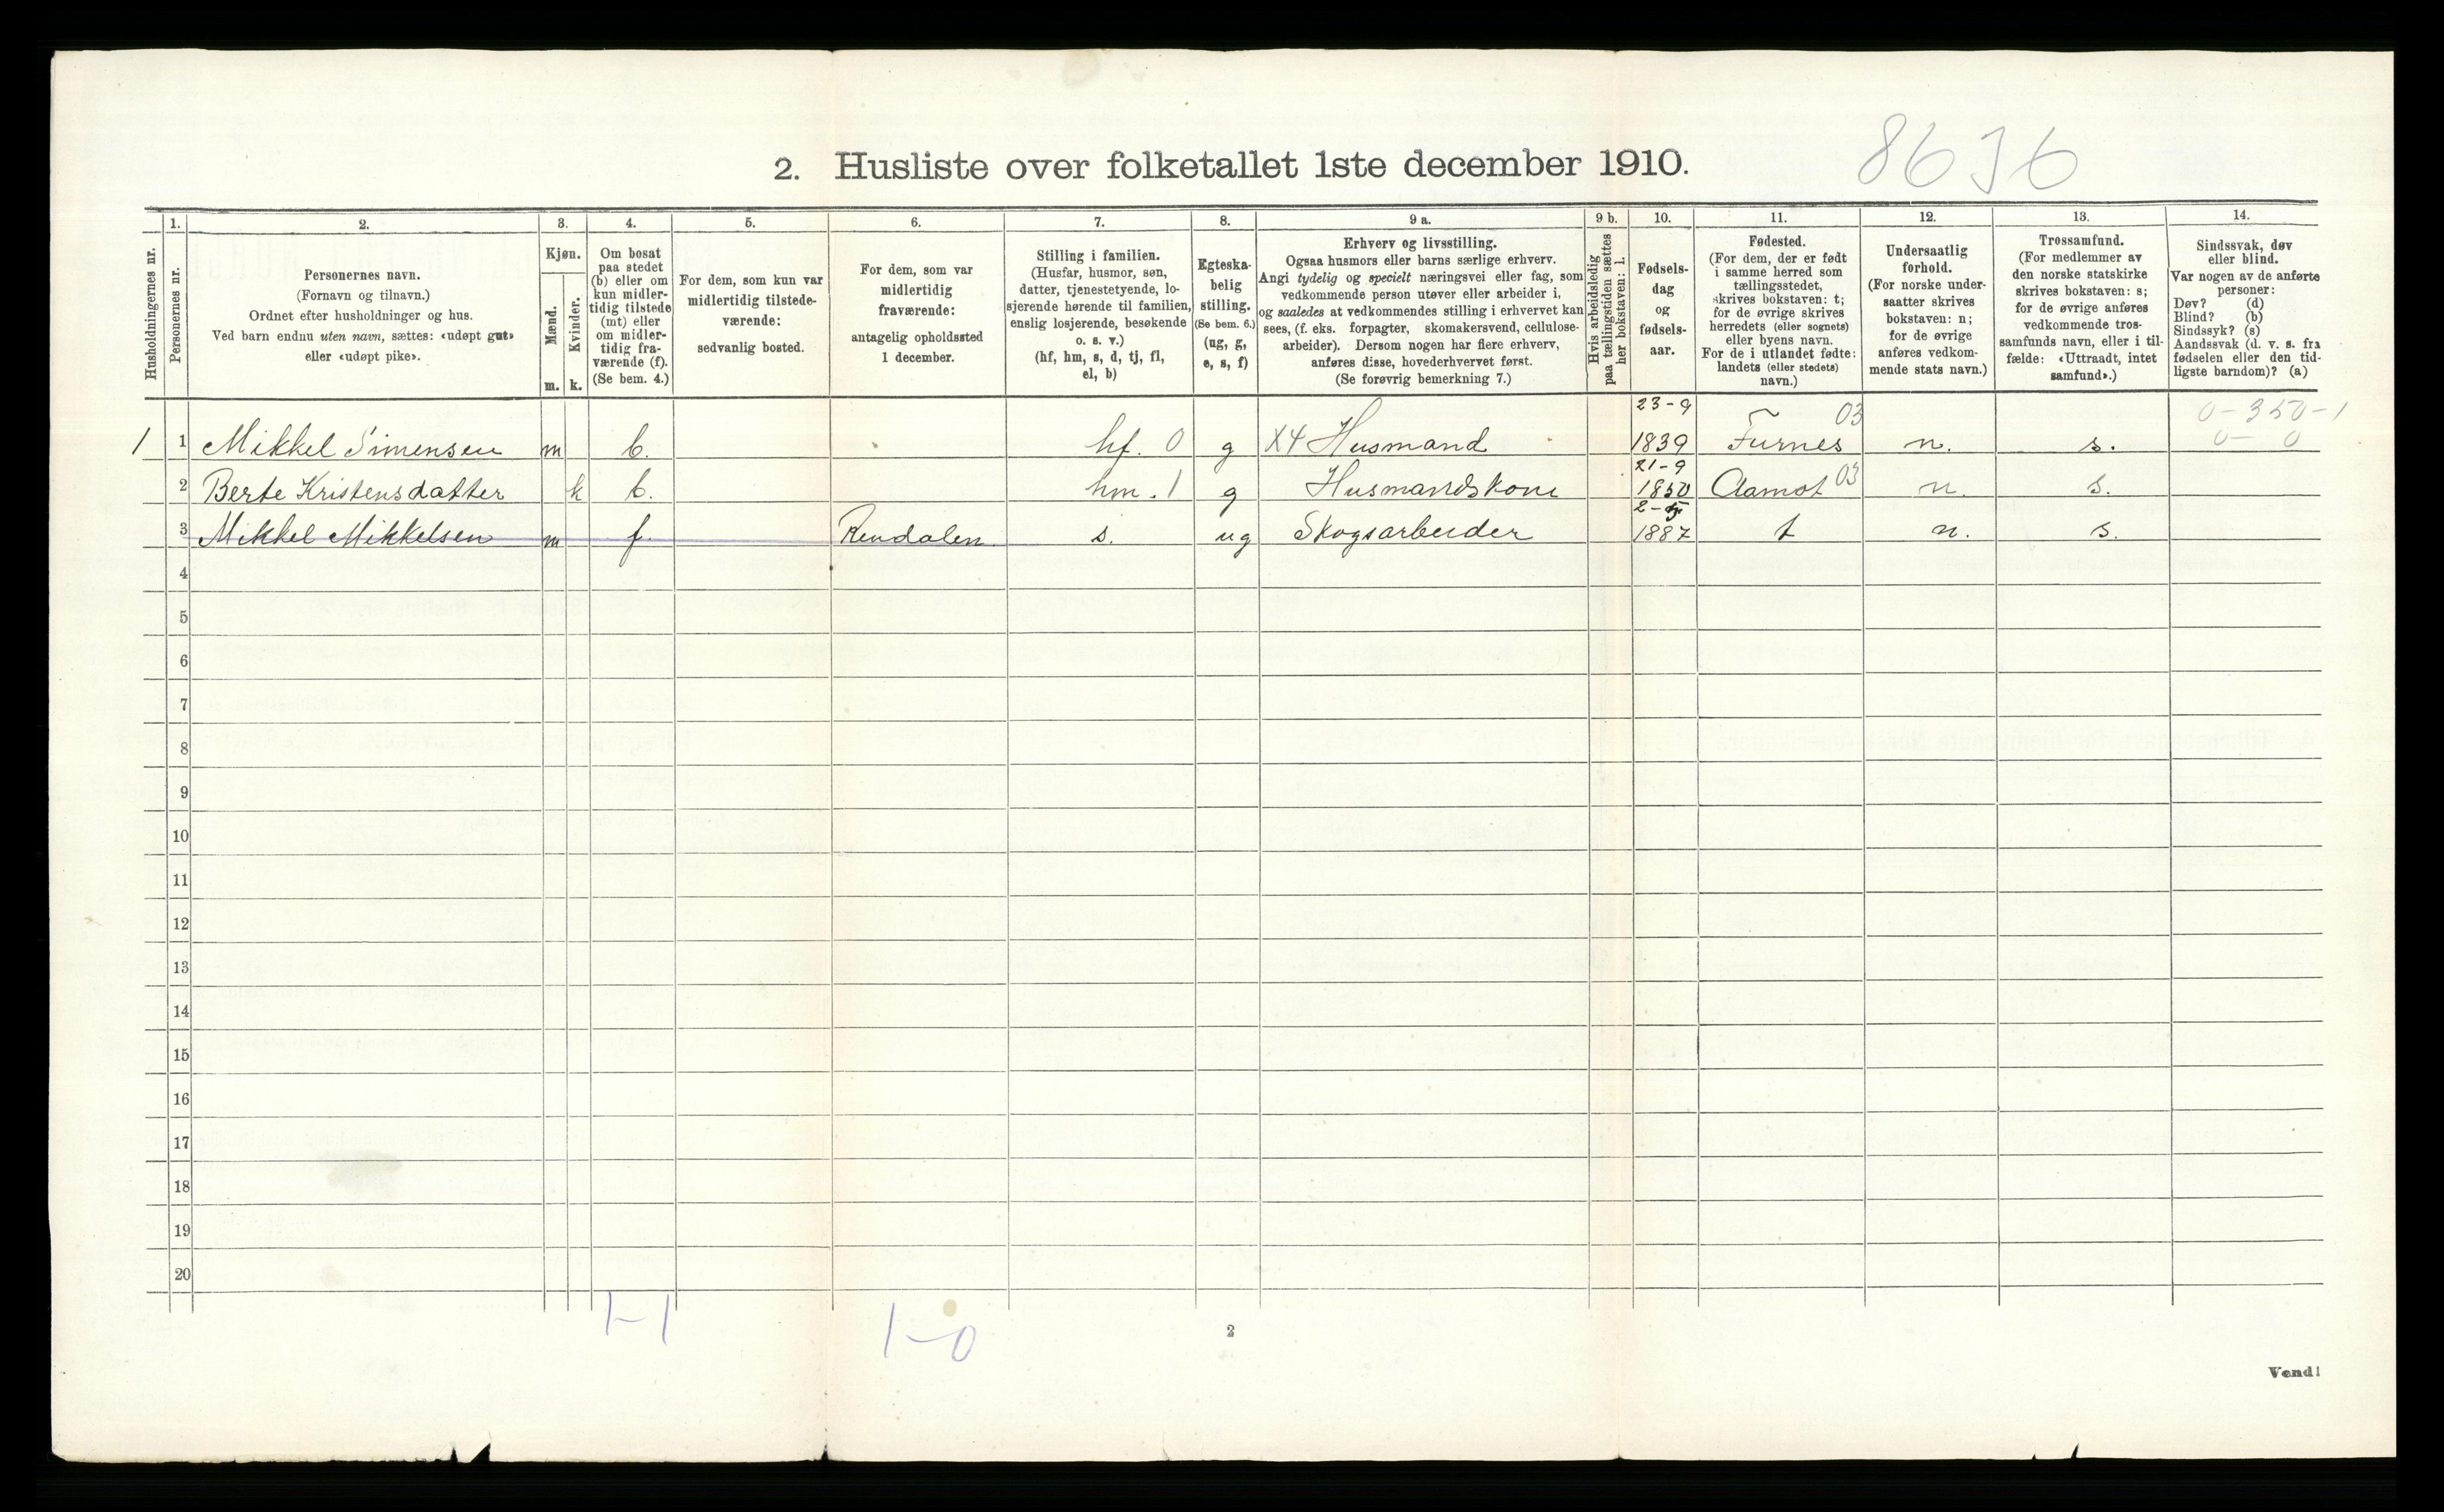 8636
2. Husliste over folketallet 1ste december 1910.
Husholdningernes nr.
1.
Personernes nr.
2.
Personernes navn.
(Fornavn og tilnavn.)
Ordnet efter husholdninger og hus.
Ved barn endnu uten navn, sættes: «udøpt gut»
eller «udøpt pike».
3.
Kjøn.
Mænd.
Kvinder.
m. k.
4.
Om bosat
paa stedet
(b) eller om
kun midler-
tidig tilstede
(mt) eller
om midler-
tidig fra-
værende (f).
(Se bem. 4.)
5.
For dem, som kun var
midlertidig tilstede-
værende:
sedvanlig bosted.
6.
For dem, som var
midlertidig
fraværende:
antagelig opholdssted
1 december.
7.
Stilling i familien.
(Husfar, husmor, søn,
datter, tjenestetyende, lo-
sjerende hørende til familien,
enslig losjerende, besøkende
o. s. v.)
(hf, hm, s, d, tj, fl,
el, b)
8.
Egteska-
belig
stilling.
(Se bem. 6.)
(ug, g,
e, s, f)
9 a.
Erhverv og livsstilling.
Ogsaa husmors eller barns særlige erhverv.
Angi tydelig og specielt næringsvei eller fag, som
vedkommende person utøver eller arbeider i,
og saaledes at vedkommendes stilling i erhvervet kan
sees, (f. eks. forpagter, skomakersvend, cellulose-
arbeider). Dersom nogen har flere erhverv,
anføres disse, hovederhvervet først.
(Se forøvrig bemerkning 7.)
9 b.
Hvis arbeidsledig
paa tællingstiden sættes
her bokstaven: l.
10.
Fødsels-
dag
og
fødsels-
aar.
11.
Fødested.
(For dem, der er født
i samme herred som
tællingsstedet,
skrives bokstaven: t;
for de øvrige skrives
herredets (eller sognets)
eller byens navn.
For de i utlandet fødte:
landets (eller stedets)
navn.)
12.
Undersaatlig
forhold.
(For norske under-
saatter skrives
bokstaven: n;
for de øvrige
anføres vedkom-
mende stats navn.)
13.
Trossamfund.
(For medlemmer av
den norske statskirke
skrives bokstaven: s;
for de øvrige anføres
vedkommende tros-
samfunds navn, eller i til-
fælde: «Uttraadt, intet
samfund».)
14.
Sindssvak, døv
eller blind.
Var nogen av de anførte
personer:
Døv? (d)
Blind? (b)
Sindssyk? (s)
Aandssvak (d. v. s. fra
fødselen eller den tid-
ligste barndom)? (a)
23-9 03 0-350-1
1 1 Mikkel Simensen m b. hf. 0 g X4 Husmand 1839 Furnes n. s. 0-0
21-9
2 Berte Kristensdatter k b. hm. 1 g Husmandskone 1850 Aamot 03 n. s.
2-5
3 Mikkel Mikkelsen m f. Rendalen s. ug Skogsarbeider 1887 t n. s.
4
5
6
7
8
9
10
11
12
13
14
15
16
17
18
19
20
1-1 1-0
2
Vend!